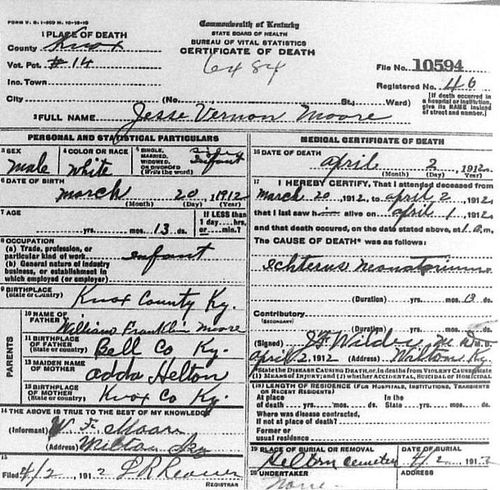 FORM V. S. 1-
Commonwealth of Kentucky
STATE BOARD OF HEALTH
BUREAU OF VITAL STATISTICS
CERTIFICATE OF DEATH
1 PLACE OF DEATH
County Knox
Vot. Pct. #14
Inc. Town
City (No. St.; Ward)
6484
File No. 10594
Registered No. 40
[If death occurred in a hospital or institution, give its NAME instead of street and number.]
2 FULL NAME Jesse Vernon Moore
PERSONAL AND STATISTICAL PARTICULARS
3 SEX male
4 COLOR OR RACE white
5 SINGLE, MARRIED, WIDOWED, OR DIVORCED (Write the word) Infant
6 DATE OF BIRTH
March 20 1912
(Month) (Day) (Year)
7 AGE
yrs. mos. 13 ds.
If LESS than 1 day....hrs. or....min.?
8 OCCUPATION
(a) Trade, profession, or particular kind of work
(b) General nature of industry business, or establishment in which employed (or employer)
infant
9 BIRTHPLACE (State or country) Knox County Ky.
PARENTS
10 NAME OF FATHER William Franklin Moore
11 BIRTHPLACE OF FATHER (State or country) Bell Co Ky.
12 MAIDEN NAME OF MOTHER Adda Helton
13 BIRTHPLACE OF MOTHER (State or country) Knox Co Ky.
14 THE ABOVE IS TRUE TO THE BEST OF MY KNOWLEDGE
(Informant) W. F. Moore
(Address) Wilton Ky
15
Filed 4/2, 1912
REGISTRAR
MEDICAL CERTIFICATE OF DEATH
16 DATE OF DEATH
April 2, 1912
(Month) (Day) (Year)
17 I HEREBY CERTIFY, That I attended deceased from
March 20, 1912, to April 2, 1912,
that I last saw h alive on April 1, 1912,
and that death occurred, on the date stated above, at m.
The CAUSE OF DEATH* was as follows:
Ichterus Neonatorium
(Duration) yrs. mos. 13 ds.
Contributory (SECONDARY)
(Duration) yrs. mos. ds.
(Signed) M. D.
April 2, 1912 (Address) Wilton Ky.
*State the DISEASE CAUSING DEATH, or, in deaths from VIOLENT CAUSES, state (1) MEANS OF INJURY; and (2) whether ACCIDENTAL, SUICIDAL or HOMICIDAL.
18 LENGTH OF RESIDENCE (FOR HOSPITALS, INSTITUTIONS, TRANSIENTS OR RECENT RESIDENTS)
At place of death yrs. mos. ds. In the State yrs. mos. ds.
Where was disease contracted, If not at place of death?
Former or usual residence
19 PLACE OF BURIAL OR REMOVAL Helton Cemetery
DATE OF BURIAL 4/2, 1912
20 UNDERTAKER None
ADDRESS